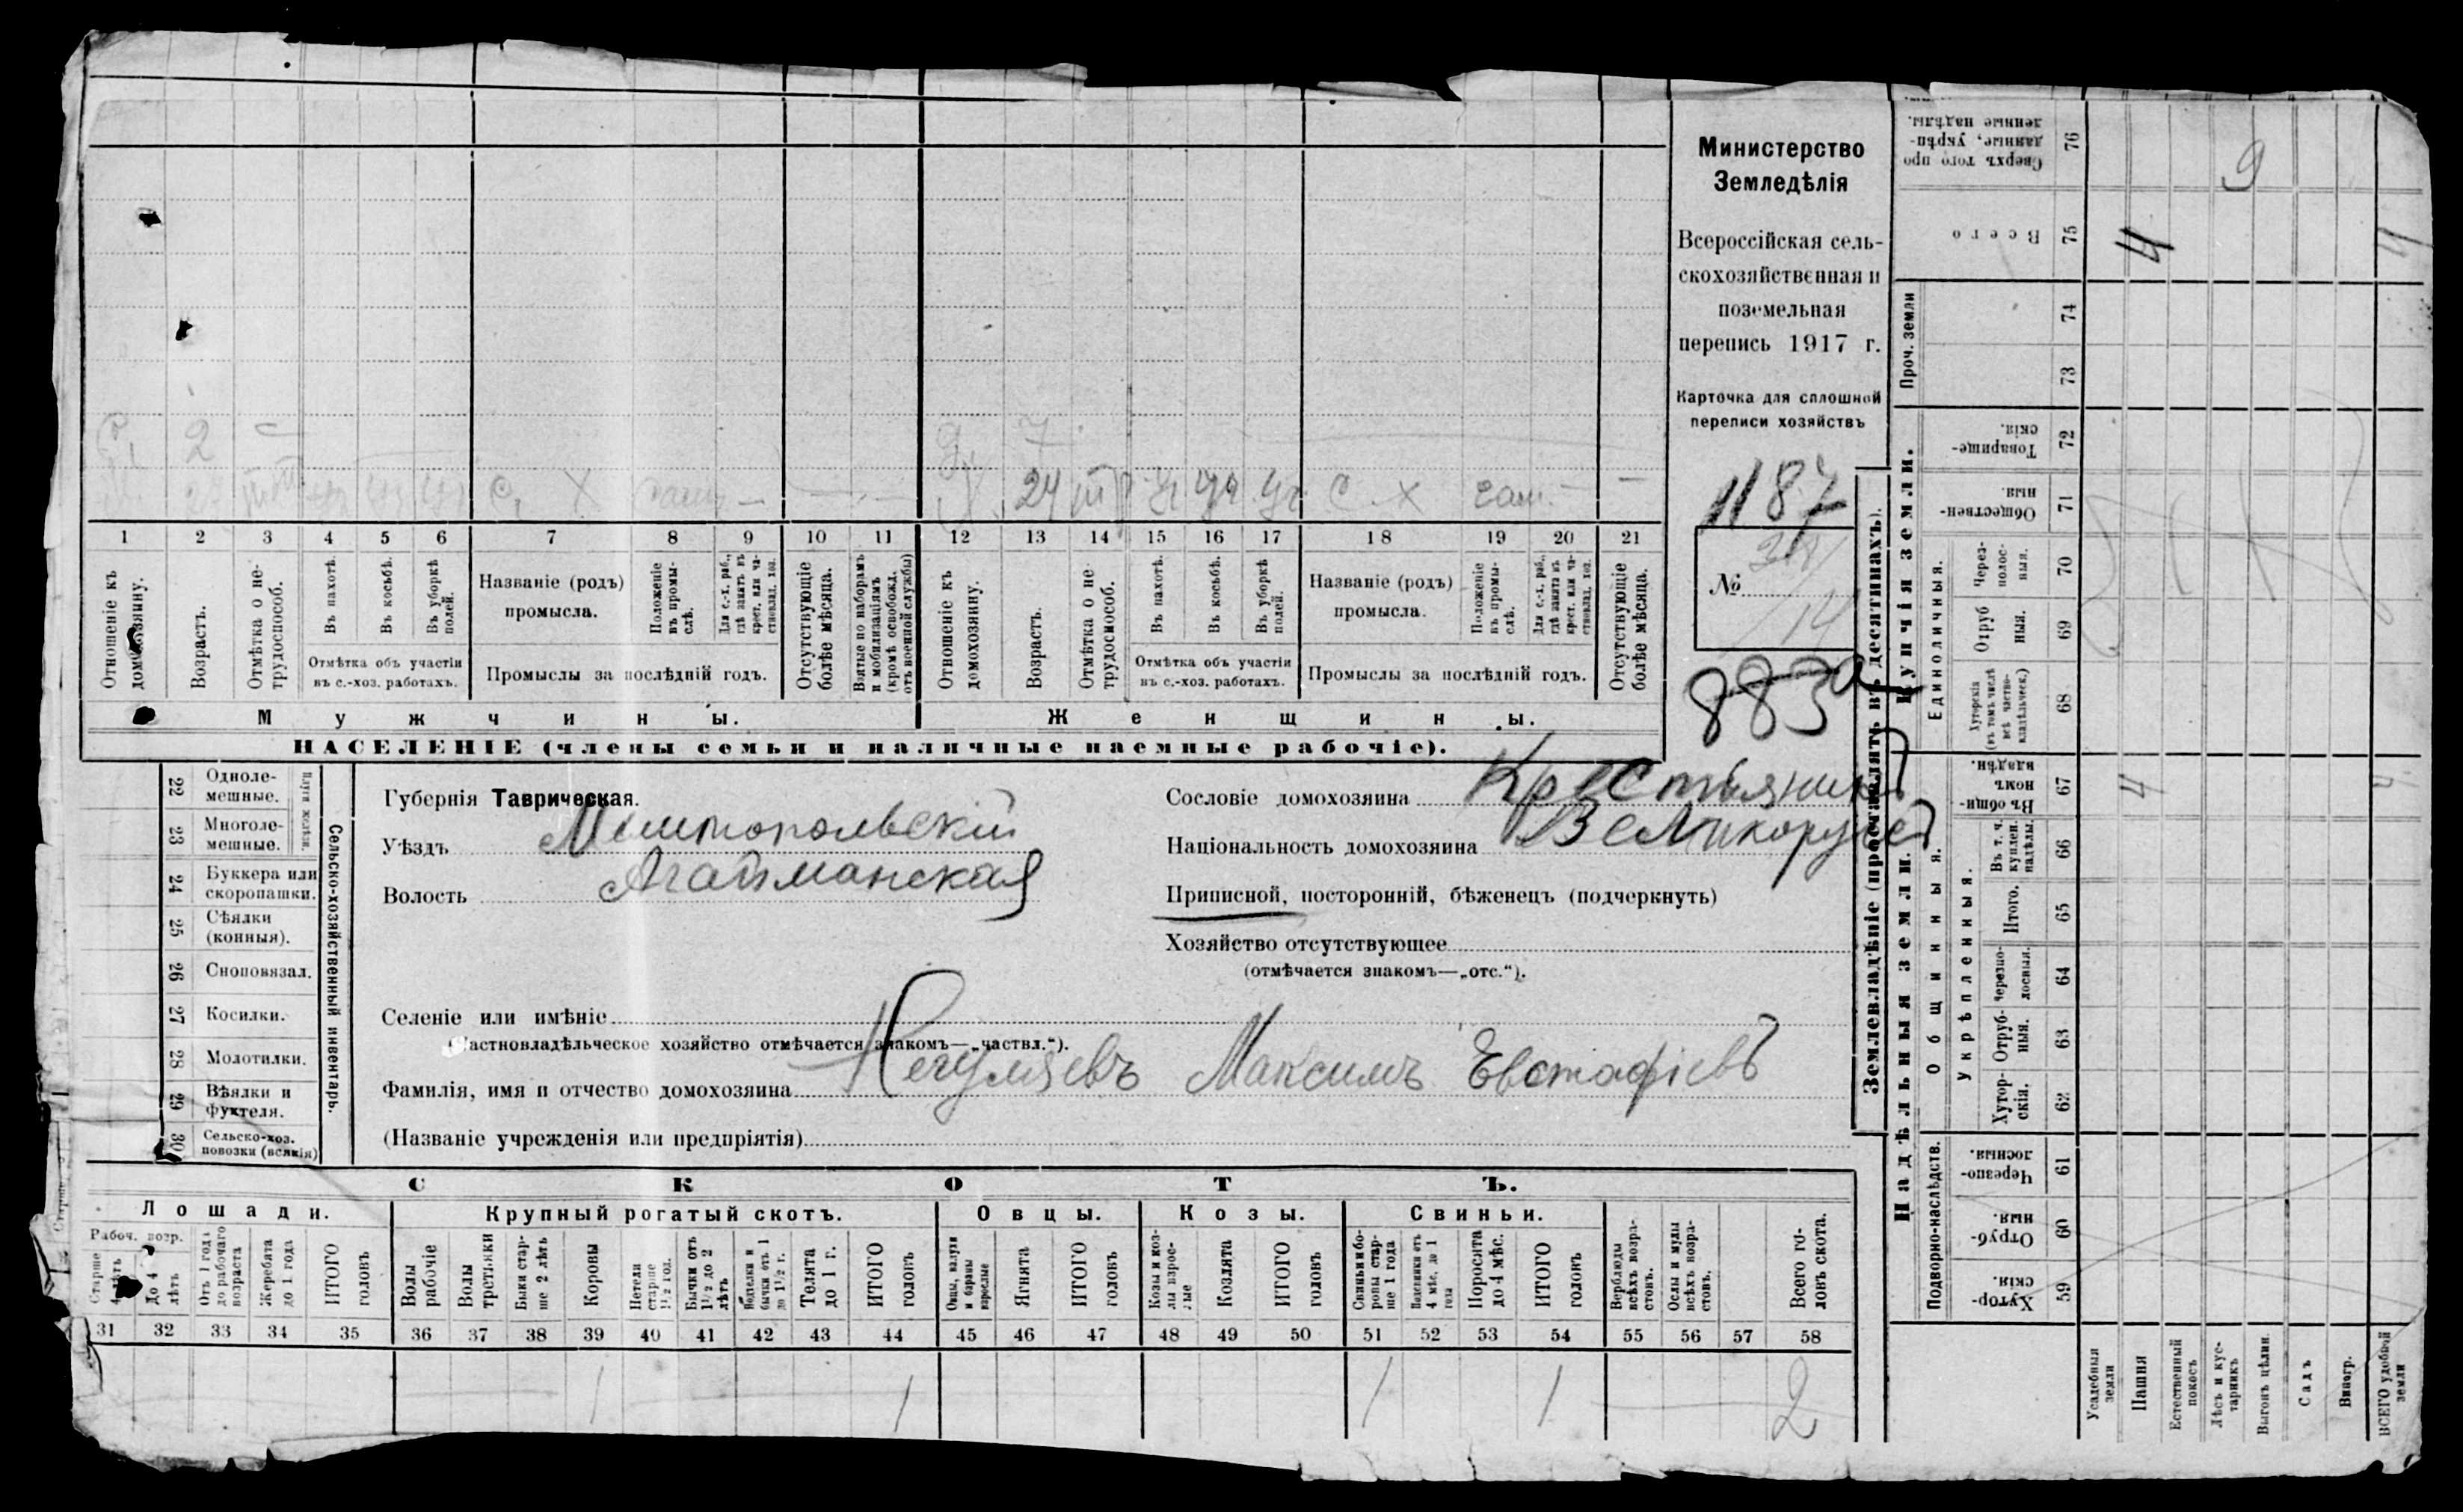 Министерство
Земледѣлія
Всероссійская сель-
скохозяйственная и
поземельная
перепись 1917 г.
Карточка для сплошной
переписи хозяйствъ
1187
№
14
883а
2
7
27 С. Х
24 С. Х
1 2 3 4 5 6 7 8 9 10 11 12 13 14 15 16 17 18 19 20 21
Отношеніе къ домохозяину.
Возрастъ.
Отмѣтка о не-трудоспособ.
Въ пахотѣ.
Въ косьбѣ.
Въ уборкѣ полей.
Отмѣтка объ участіи
въ с.-хоз. работахъ.
Названіе (родъ)
промысла.
Положеніе въ промы-слѣ.
Для с.-х. раб., гдѣ занятъ въ крест. или ча-стновлад. хоз.
Промыслы за послѣдній годъ.
Отсутствующіе болѣе мѣсяца.
Взятые по наборамъ и мобилизаціямъ (кромѣ освобожд. отъ военной службы)
Отношеніе къ домохозяину.
Возрастъ.
Отмѣтка о не-трудоспособ.
Въ пахотѣ.
Въ косьбѣ.
Въ уборкѣ полей.
Отмѣтка объ участіи
въ с.-хоз. работахъ.
Названіе (родъ)
промысла.
Положеніе въ промы-слѣ.
Для с.-х. раб., гдѣ занята въ крест. или ча-стновлад. хоз.
Промыслы за послѣдній годъ.
Отсутствующіе болѣе мѣсяца.
Мужчины.
Женщины.
НАСЕЛЕНІЕ (члены семьи и наличные наемные рабочіе).
22 Одноле-мешные.
23 Многоле-мешные.
Плуги желѣзн.
24 Буккера или скоропашки.
25 Сѣялки (конныя).
26 Сноповязал.
27 Косилки.
28 Молотилки.
29 Вѣялки и фухтеля.
30 Сельско-хоз. повозки (всякія)
Сельско-хозяйственный инвентарь.
Губернія Таврическая.
Уѣздъ Мелитопольскій
Волость Агайманская
Сословіе домохозяина Крестьянинъ
Національность домохозяина Великорусъ
Приписной, посторонній, бѣженецъ (подчеркнуть)
Хозяйство отсутствующее
(отмѣчается знакомъ—„отс.“).
Селеніе или имѣніе
(Частновладѣльческое хозяйство отмѣчается знакомъ—„частвл.“).
Фамилія, имя и отчество домохозяина Максимъ Евстафіевъ
(Названіе учрежденія или предпріятія)
СКОТЪ.
Лошади.
Крупный рогатый скотъ.
Овцы.
Козы.
Свиньи.
Рабоч. возр.
Старше 4 лѣтъ
До 4 лѣтъ
Отъ 1 года до рабочаго возраста
Жеребята до 1 года
ИТОГО головъ
Волы рабочіе
Волы третьяки
Быки стар-ше 2 лѣтъ
Коровы
Нетели старше 1½ год.
Бычки отъ 1½ до 2 лѣтъ
Подтелки и бычки отъ 1 до 1½ г.
Телята до 1 г.
ИТОГО головъ
Овцы, валухи и бараны взрослые
Ягнята
ИТОГО головъ
Козы и коз-лы взрос-лые
Козлята
ИТОГО головъ
Свиньи и бо-ровы стар-ше 1 года
Подсвинки отъ 4 мѣс. до 1 года
Поросята до 4 мѣс.
ИТОГО головъ
Верблюды всѣхъ возра-стовъ.
Ослы и мулы всѣхъ возра-стовъ.
Всего го-ловъ скота.
31 32 33 34 35 36 37 38 39 40 41 42 43 44 45 46 47 48 49 50 51 52 53 54 55 56 57 58
1 1 1 1 2
Землевладѣніе (проставлять въ десятинахъ).
Купчія земли.
Надѣльныя земли.
Сверхъ того про-данные, укрѣп-ленные надѣлы. 76 9
Всего 75 4 4
Проч. земли
74
73
Товарище-скія. 72
Обществен-ныя. 71
Единоличныя.
Через-полос-ныя. 70
Отруб-ныя. 69
Хуторскія (въ томъ числѣ всѣ частно-владѣльческ.) 68
Общинныя.
Въ общин-номъ владѣн. 67 4 4
Укрѣпленныя.
Въ т. ч. куплен. надѣлы. 66
Итого. 65
Черезпо-лосныя. 64
Отруб-ныя. 63
Хутор-скія. 62
Подворно-наслѣдств.
Черезпо-лосныя. 61
Отруб-ныя. 60
Хутор-скія. 59
Усадебныя земли
Пашня
Естественный покосъ
Лѣсъ и кус-тарникъ
Выгонъ цѣлин.
Садъ
Виногр.
ВСЕГО удобной земли